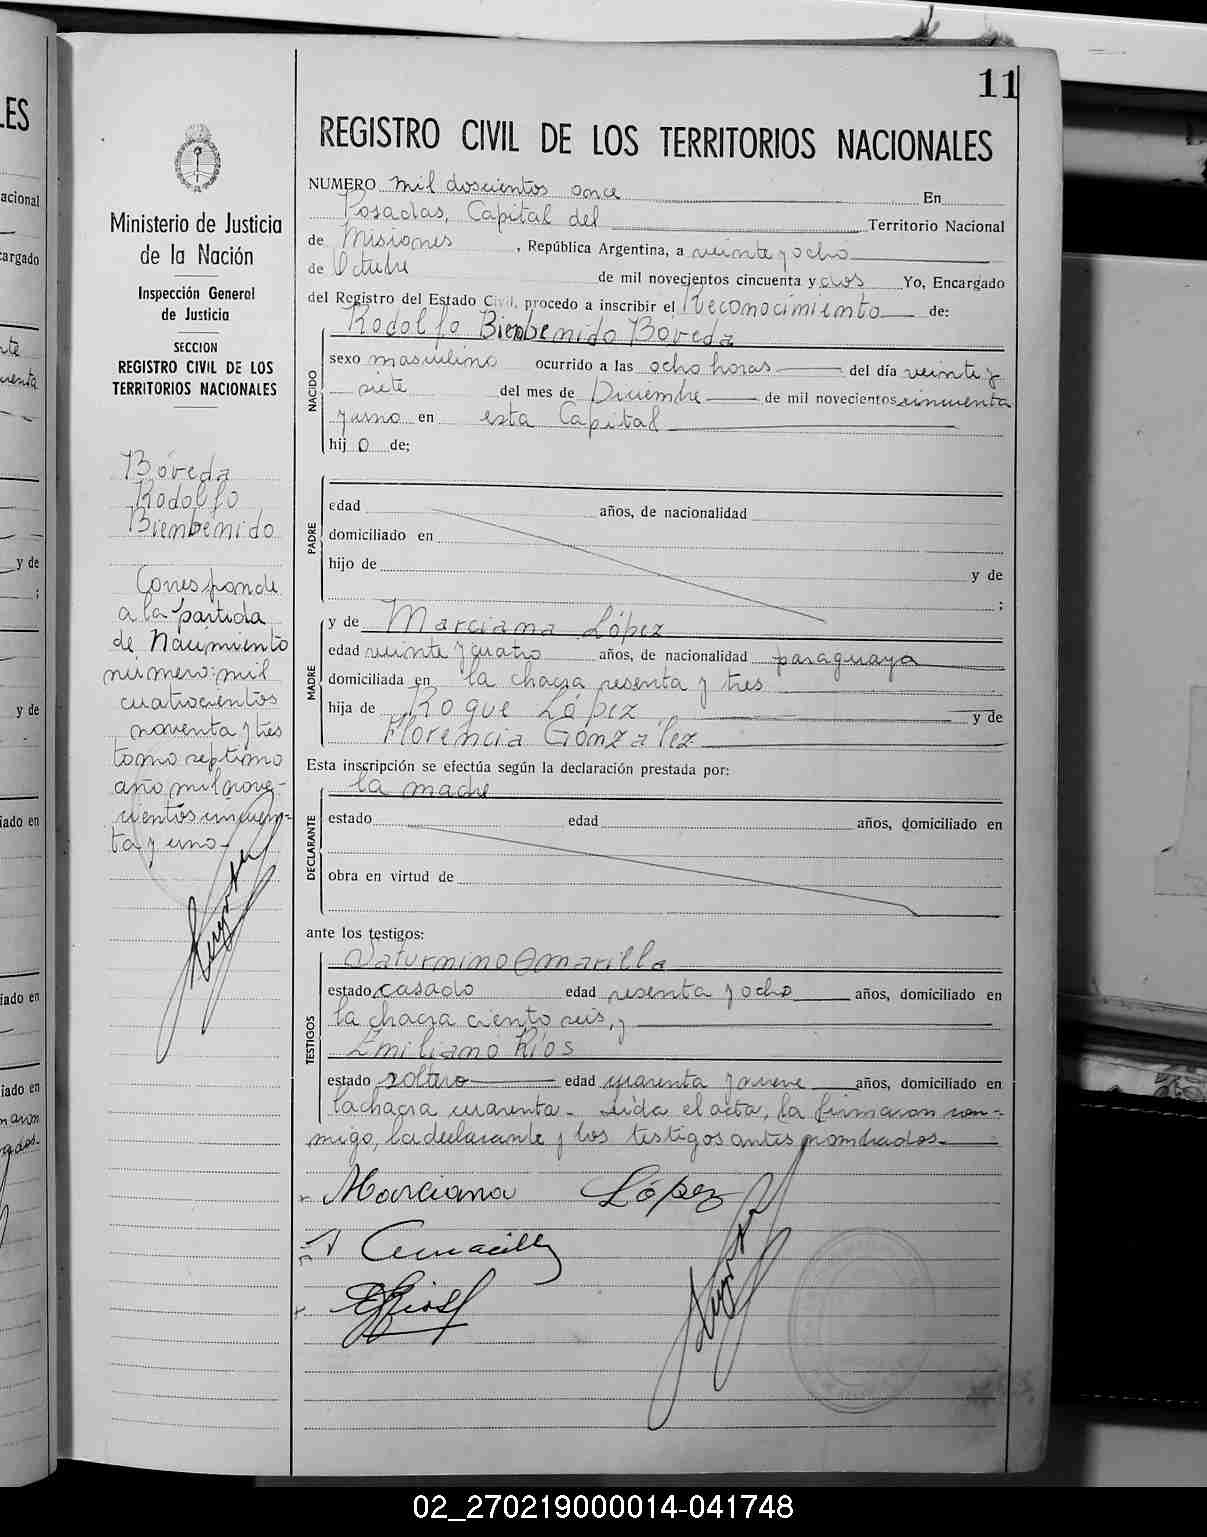 LES
acional
cargado
y de
;
y de
iado en
iado en
iado en
11
Ministerio de Justicia
de la Nación
Inspección General
de Justicia
SECCION
REGISTRO CIVIL DE LOS
TERRITORIOS NACIONALES
Bóveda
Rodolfo
Bienbenido
Corresponde
a la partida
de Nacimiento
número: mil
cuatrocientos
noventa y tres
tomo septimo
año mil nove-
cientos cincuen-
ta y uno-
REGISTRO CIVIL DE LOS TERRITORIOS NACIONALES
NUMERO mil doscientos once En
Posadas, Capital del Territorio Nacional
de Misiones , República Argentina, a veinte y ocho
de Octubre de mil novecientos cincuenta y dos Yo, Encargado
del Registro del Estado Civil, procedo a inscribir el Reconocimiento de:
Rodolfo Bienbenido Boveda
NACIDO
sexo masculino ocurrido a las ocho horas del día veinte y
siete del mes de Diciembre de mil novecientos cincuenta
y uno en esta Capital
hij o de;
PADRE
edad años, de nacionalidad
domiciliado en
hijo de y de
;
MADRE
y de Marciana López
edad veinte y cuatro años, de nacionalidad paraguaya
domiciliada en la chacra sesenta y tres
hija de Roque López y de
Florencia Gonzalez
Esta inscripción se efectúa según la declaración prestada por:
la madre
DECLARANTE
estado edad años, domiciliado en
obra en virtud de
ante los testigos:
Saturnino Amarilla
TESTIGOS
estado casado edad sesenta y ocho años, domiciliado en
la chacra ciento seis, y
Emiliano Ríos
estado soltero edad cuarenta y nueve años, domiciliado en
la chacra cuarenta- Leída el acta, la firmaron con-
migo, la declarante y los testigos antes nombrados-
Marciana López
02_270219000014-041748